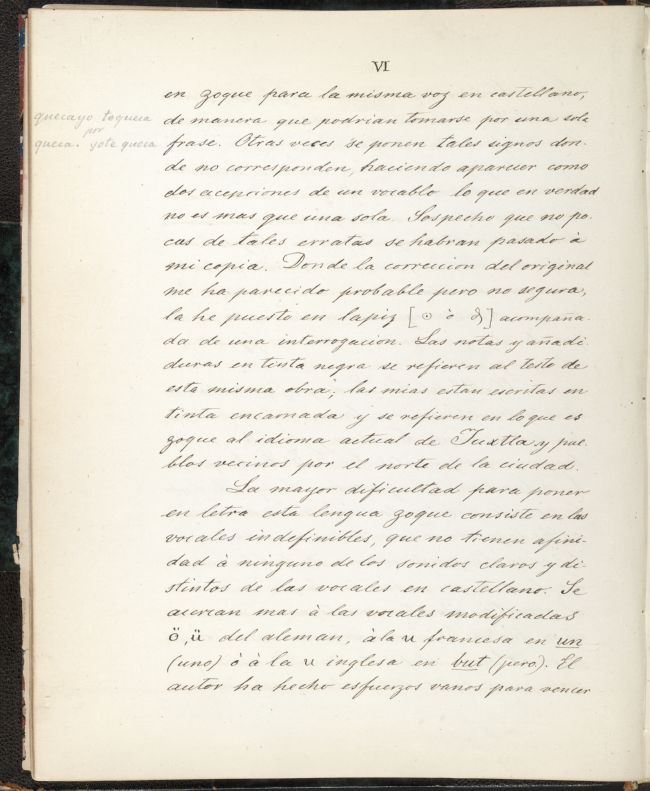 VI
en zoque para la misma voz en castellano,
de manera que podrian tomarse por una sola
frase. Otras veces se ponen tales signos don-
de no corresponden, haciendo aparecer como
dos acepciones de un vocablo lo que en verdad
no es mas que una sola. Sospecho que no po-
cas de tales erratas se habran pasado à
mi copia. Donde la correccion del original
me ha parecido probable pero no segura,
la he puesto en lapiz [⊙ ò ] acompaña-
da de una interrogacion. Las notas y añadi-
duras en tinta negra se refieren al testo de
esta misma obra; las mias estan escritas en
tinta encarnada y se refieren en lo que es
zoque al idioma actual de Tuxtla y pue-
blos vecinos por el norte de la ciudad.
La mayor dificultad para poner
en letra esta lengua zoque consiste en las
vocales indefinibles, que no tienen afini-
dad à ninguno de los sonidos claros y di-
stintos de las vocales en castellano. Se
acercan mas à las vocales modificadas
ö, ü del aleman, à la u francesa en un
(uno) ò à la u inglesa en but (pero). El
autor ha hecho esfuerzos vanos para vencer
quecayo toqueca
por
queca. yote queca